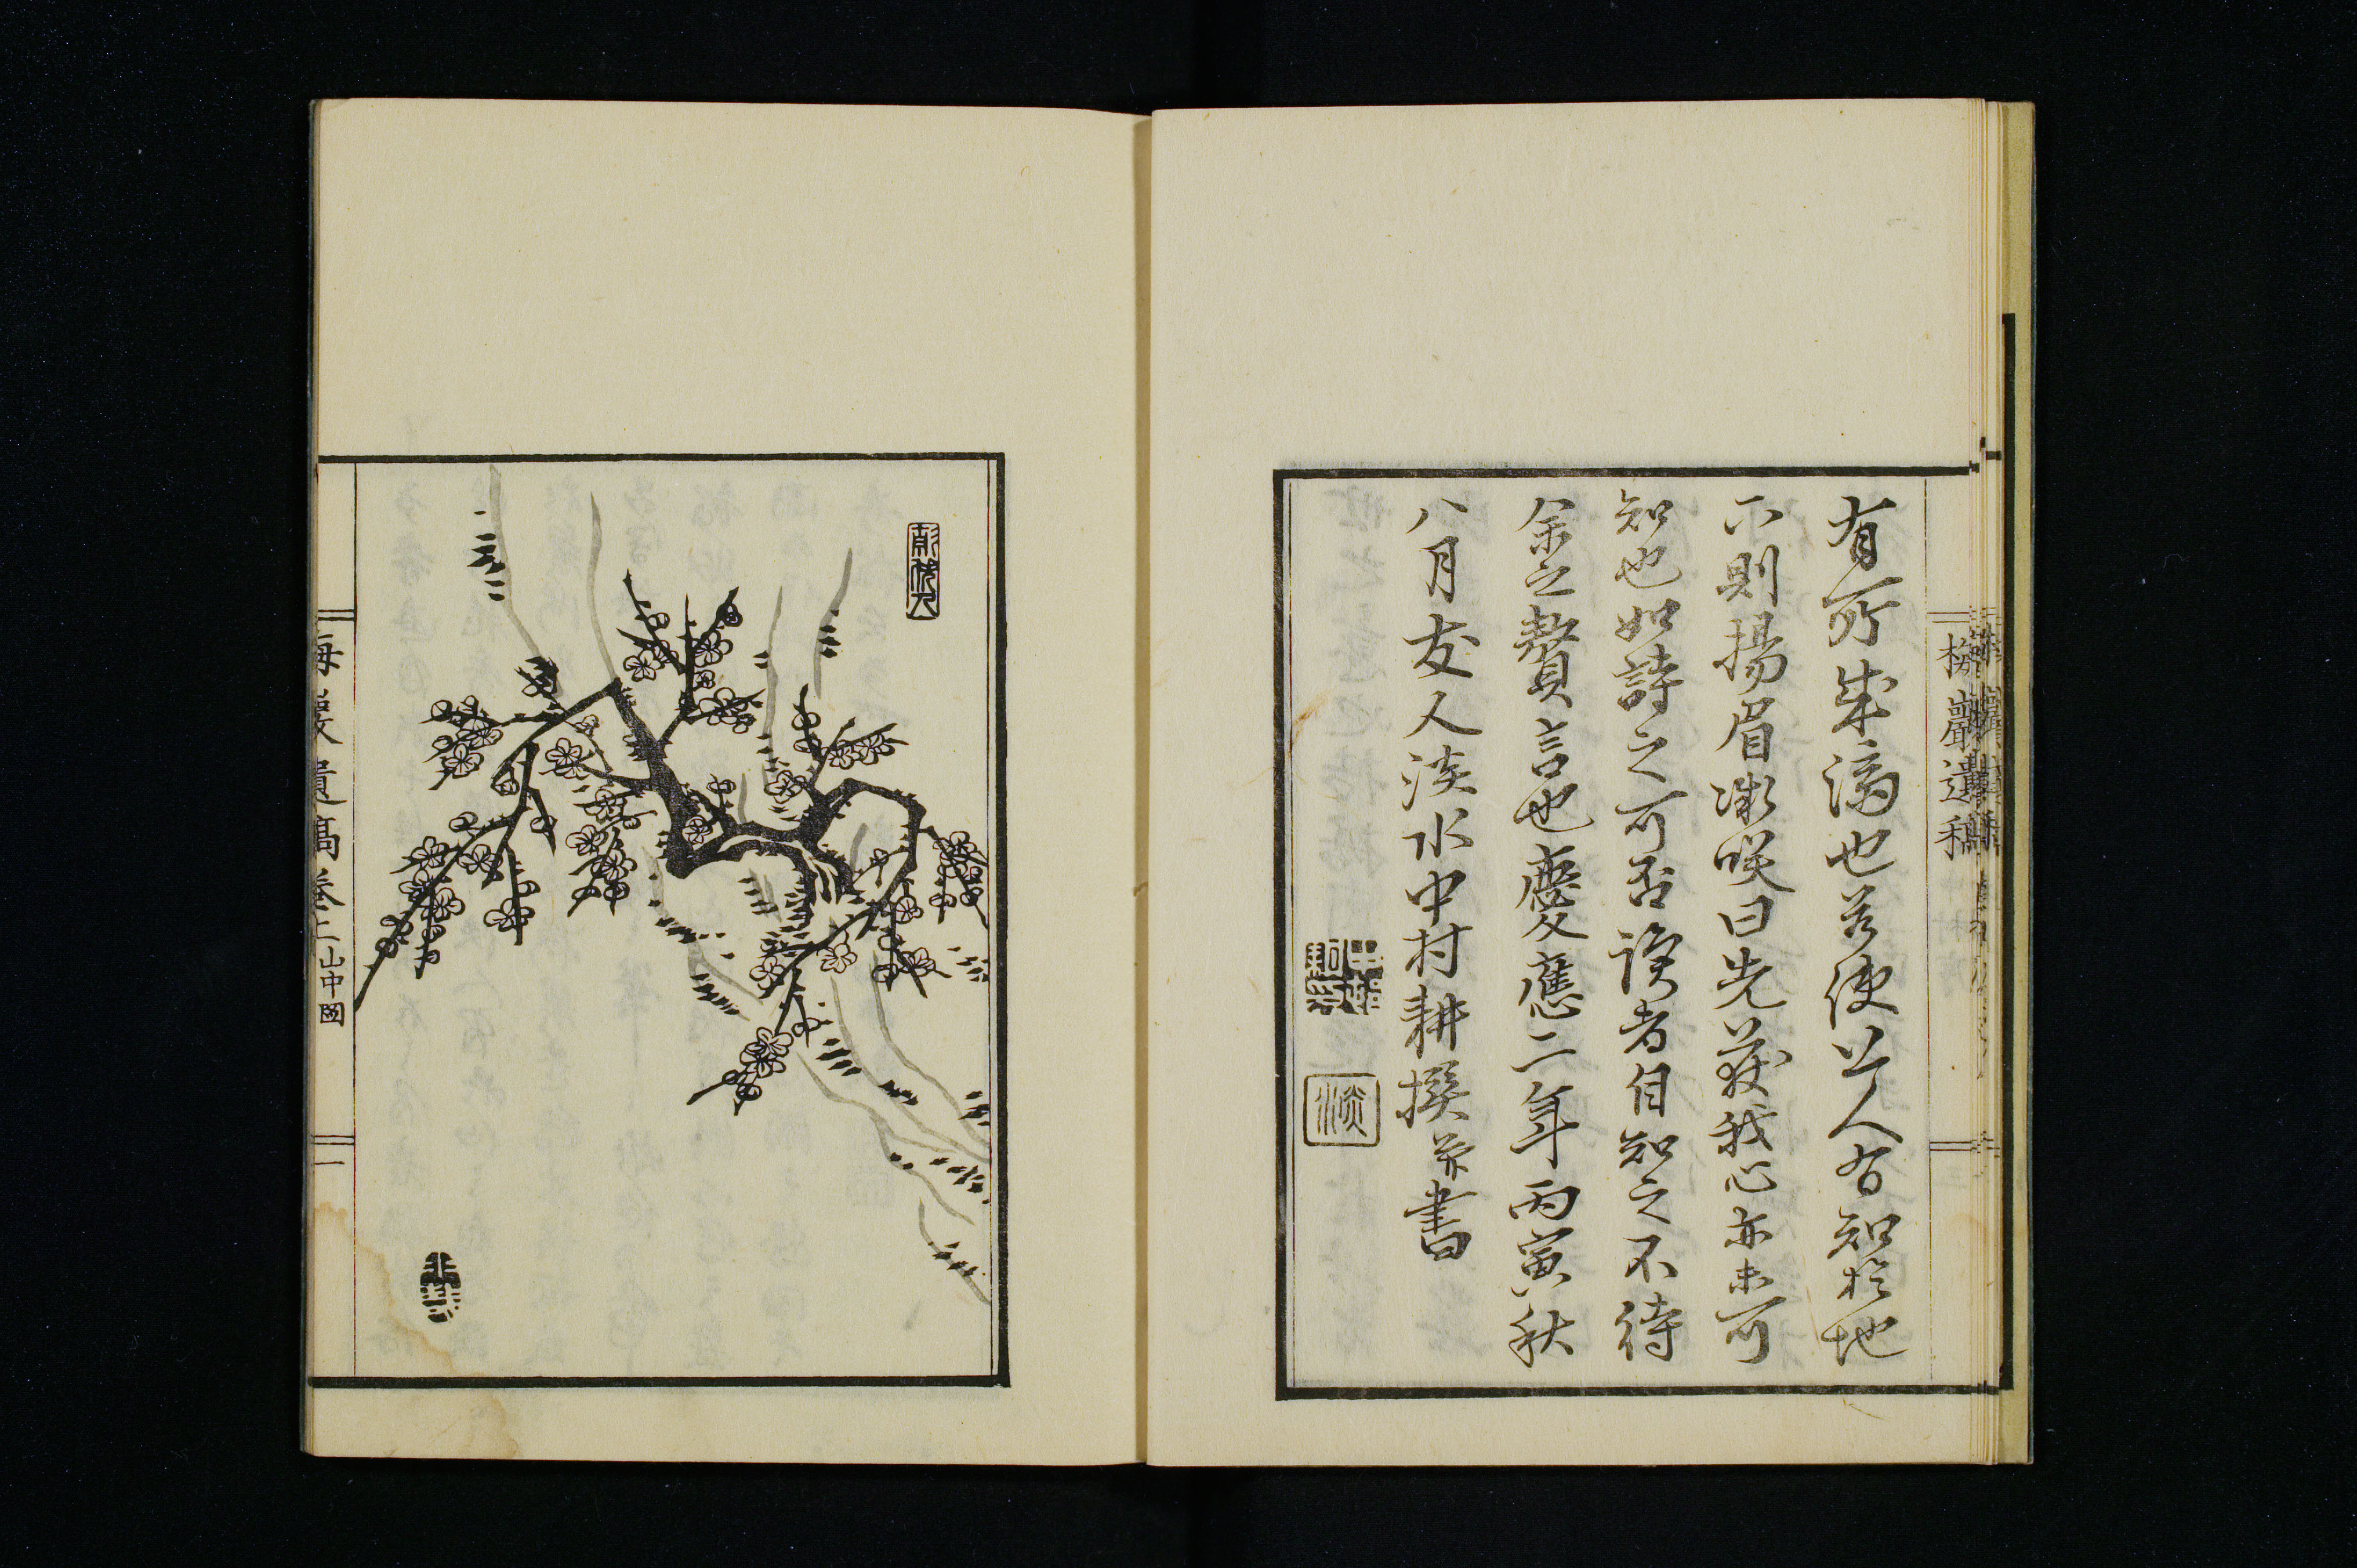 有所末滿也若使上人有知於地
下則揚眉微咲曰先獲我心亦未可
知也如詩之可否讀者自知之不待
余之贅言也慶應二年丙寅秋
八月友人淡水中村耕撰并書
淡
梅巖遺稿卷二 山中図
一